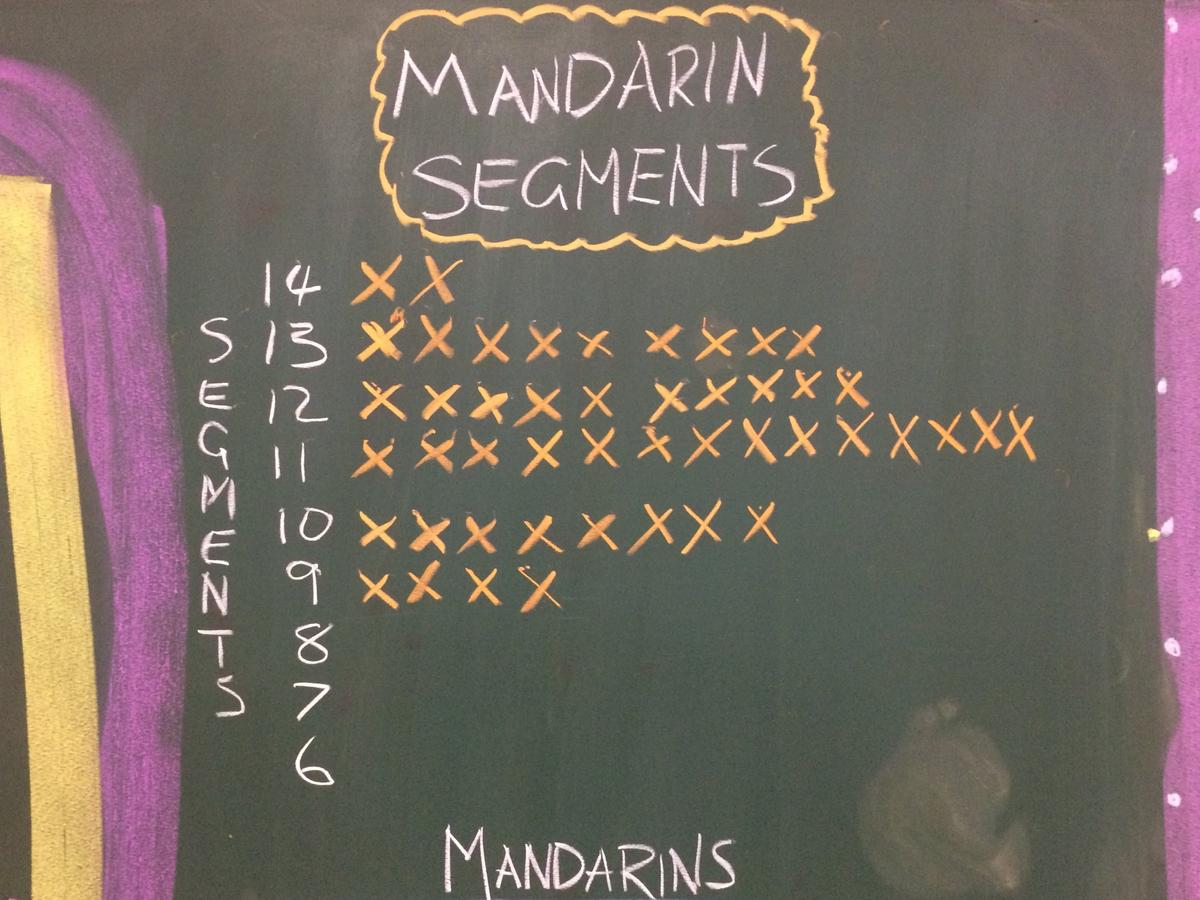 MANDARIN
SEGMENTS
SEGMENTS
14 X X
13 X X X X X X X X X
12 X X X X X X X X X X
11 X X X X X X X X X X X X X X
10 X X X X X X X X
9 X X X X
8
7
6
MANDARINS